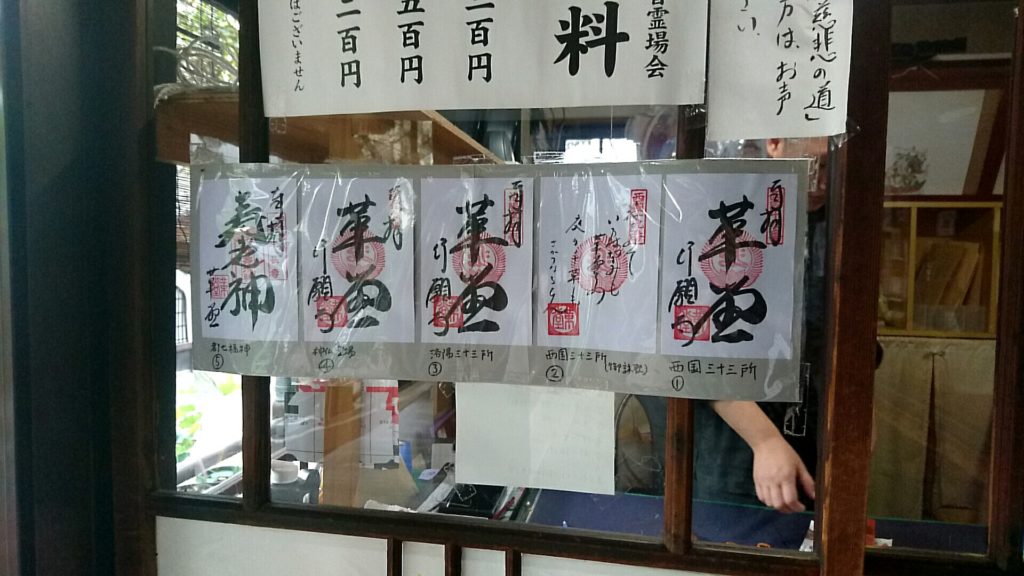 慈悲の道」
方は、お声
さい、
霊場会
料
二百円
五百円
二百円
はございません
奉拝
革堂
行願寺
西国三十三所
①
西国三十三所
(御詠歌)
②
奉拝
革堂
行願寺
洛陽三十三所
③
奉拝
革堂
行願寺
神仏霊場
④
奉拝
寿老神
革堂
都七福神
⑤